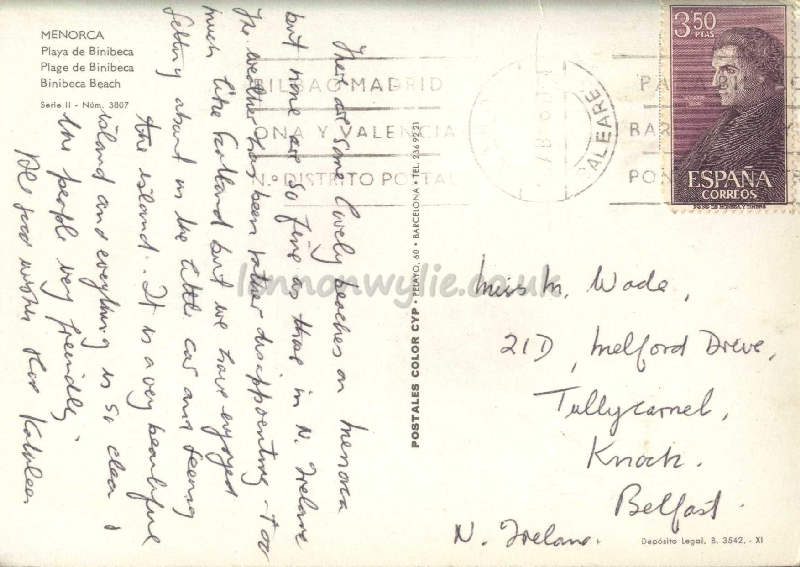 MENORCA
Playa de Binibeca
Plage de Binibeca
Binibeca Beach
Serie II - Núm. 3807
There are some lovely beaches on Menorca
but none are so fine as those in N. Ireland
The weather has been rather disappointing - too
much like Scotland but we have enjoyed
getting about in the little car and seeing
the island. It is a very beautiful
island and everything is so clean &
the people very friendly.
All good wishes Kathleen
POSTALES COLOR CYP · PELAYO, 60 · BARCELONA · TEL. 236 92 21
BILBAO MADRID
ONA Y VALENCIA
N.º DISTRITO POSTAL
ALEARES
PA
BAR
PON
3,50
PTAS
ESPAÑA
CORREOS
Miss M. Wade,
21D, Melford Drive,
Tullycarnet,
Knock.
Belfast.
N. Ireland.
Depósito Legal, B. 3542. - XI
lennonwylie.co.uk